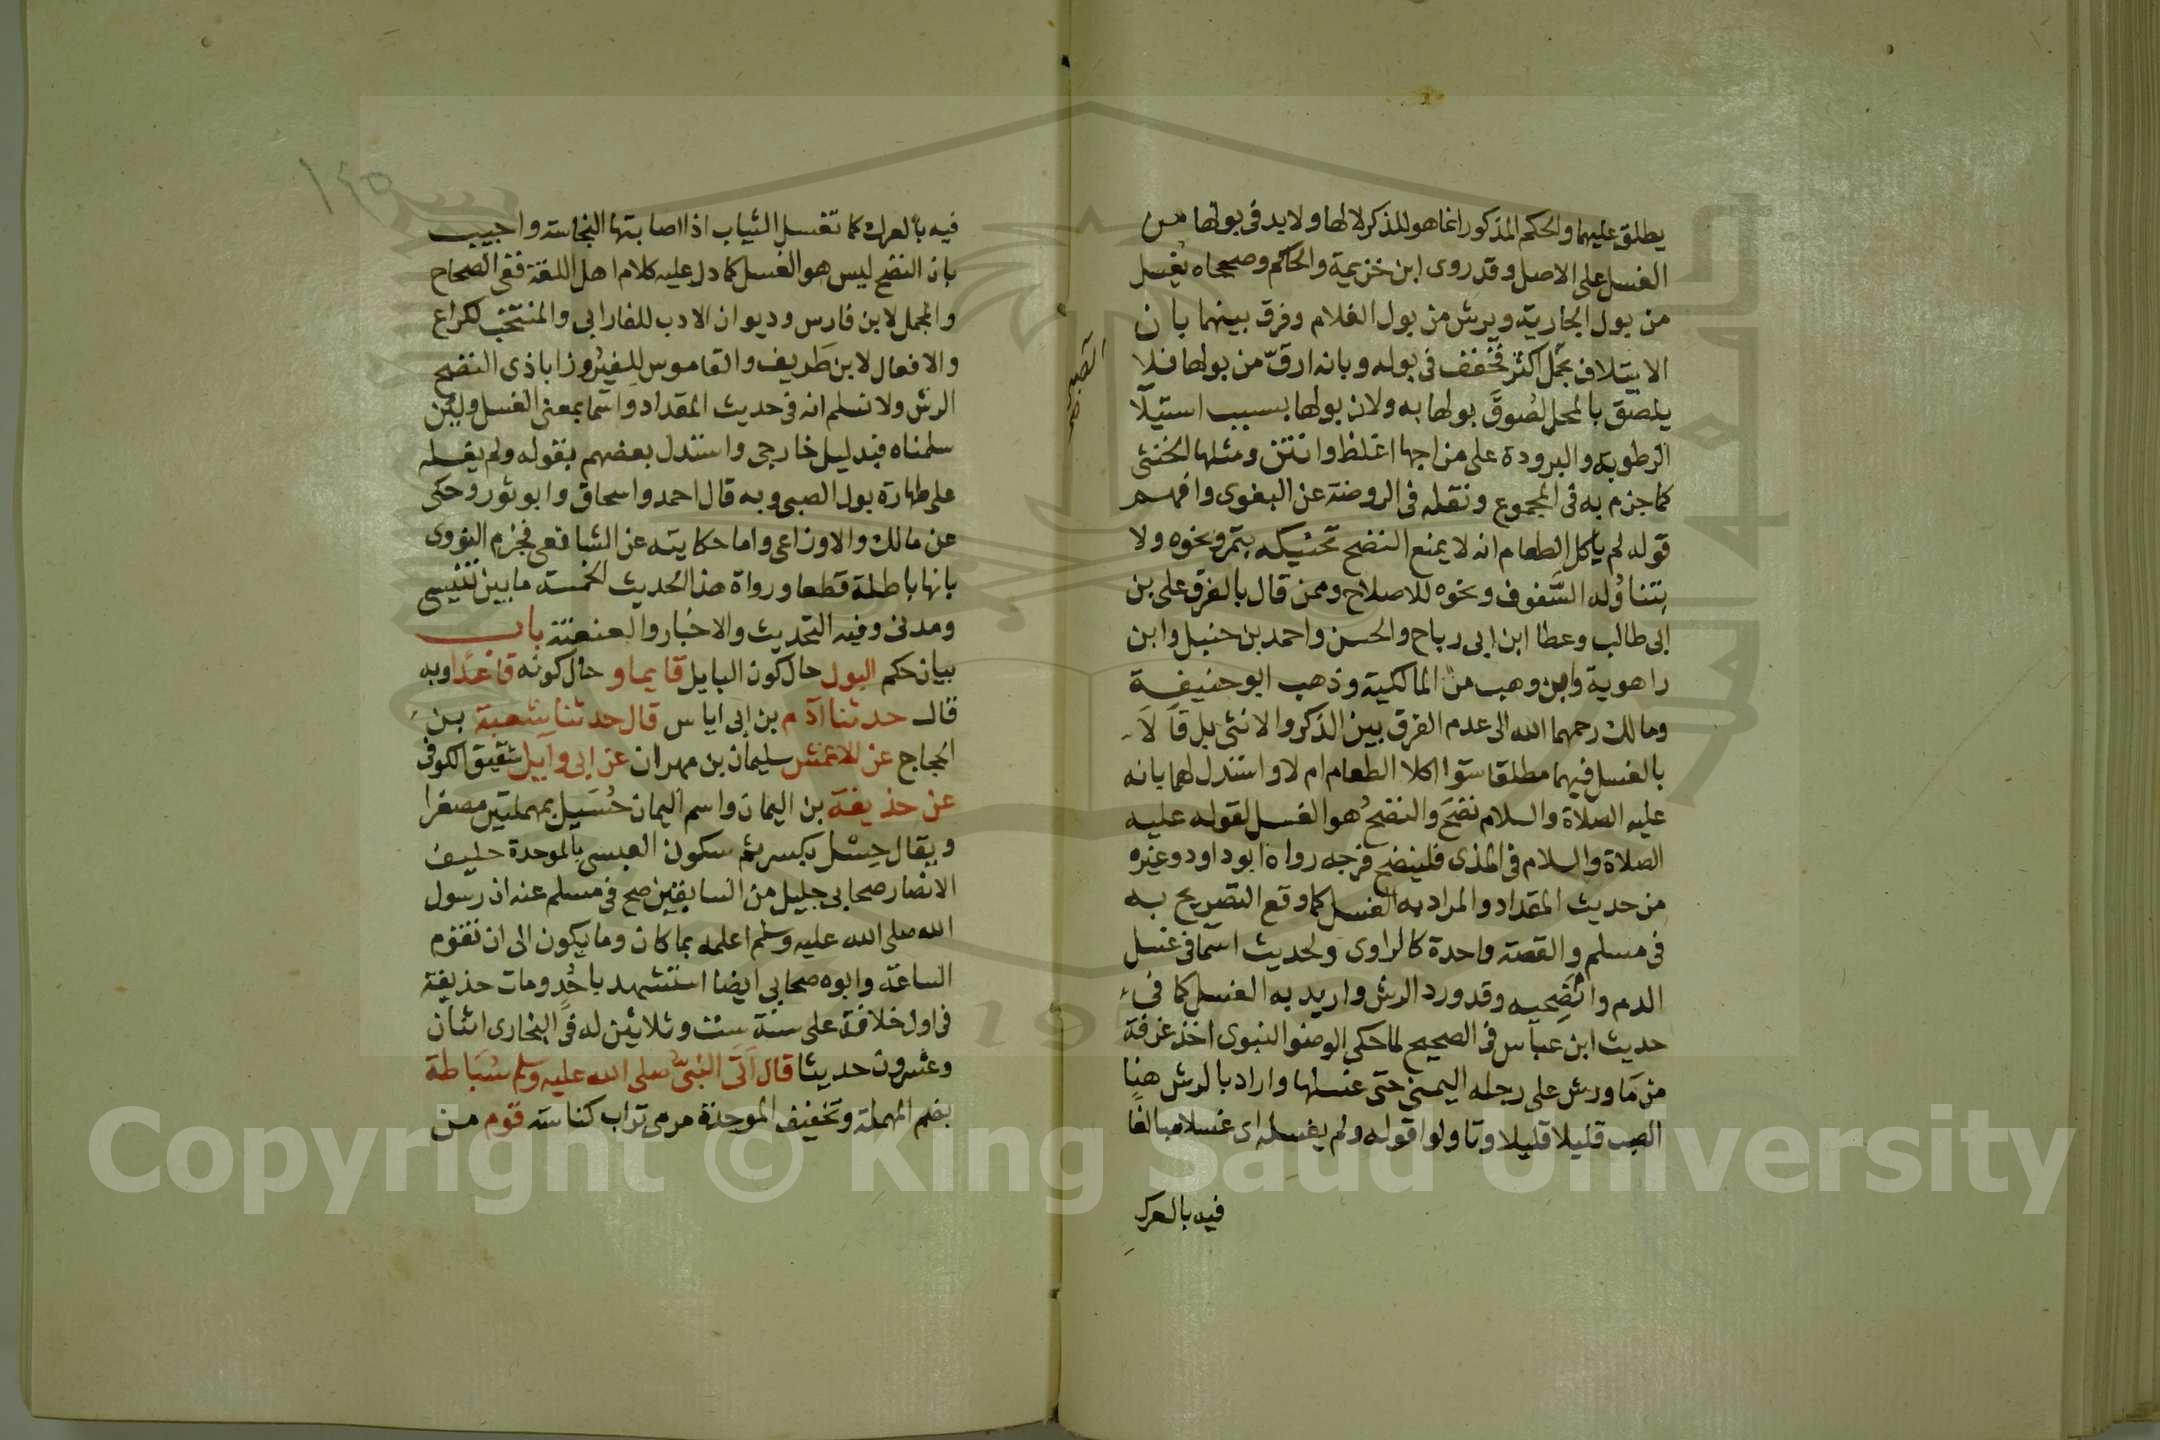 يطلق عليهما والحكم المذكور انما هو للذكر لا لها ولا بد في بولها من
الغسل على الاصل وقد روى ابن خزيمة والحاكم وصححاه يُغسل
من بول الجارية ويرش من بول الغلام وفرق بينهما بان
الايتلاف بحمل اكثر فخفف في بوله وبانه ارقّ من بولها فلا
يلصق بالمحل لُصوقَ بولها به ولان بولها بسبب استيلا
الرطوبة والبرودة على مزاجها اغلظ وانتن ومثلها الخنثى
كما جزم به في المجموع ونقله في الروضة عن البغوى وافهم
قوله لم ياكل الطعام انه لا يمنع النضح تحنيكه بتمر ونحوه ولا
يتناوُله السَّفوف ونحوه للاصلاح وممن قال بالفرق على بن
ابى طالب وعطا ابن ابى رباح والحسن واحمد بن حنبل وابن
راهوية وابن وهب من المالكية وذهب ابو حنيفة
ومالك رحمهما الله الى عدم الفرق بين الذكر والانثى بل قالا
بالغسل فيهما مطلقا سوا اكلا الطعام ام لا واستدل لهما بانه
عليه الصلاة والسلام نضَح والنضحُ هو الغسل لقوله عليه
الصلاة والسلام في المذى فلينضح فرجه رواه ابو داود وغيره
من حديث المقداد والمراد به الغسل كما وقع التصريح به
في مسلم والقصة واحدة كالراوى ولحديث اسما في غسل
الدم وانْضَحِيه وقد ورد الرش واريد به الغسل كما في
حديث ابن عباس في الصحيح لما حكى الوضو النبوى اخذ غرفة
من مَا ورش على رجله اليمنى حتى غسلها واراد بالرش هنا
الصب قليلا قليلا وتاولوا قوله ولم يغسله اى غسلا مبالغا
فيه بالعرك
فيه بالعرك كما تغسل الثياب اذا اصابتها النجاسة واجيب
بان النضح ليس هو الغسل كما دل عليه كلام اهل اللغة ففي الصحاح
والمجمل لابن فارس وديوان الادب للفارابي والمنتخب لكراع
والافعال لابن طَريف والقاموس للفيرُوزاباذى النضح
الرش ولا نسلم انه في حديث المقداد واسما بمعنى الغسل ولين
سلمناه فبدليل خارجى واستدل بعضهم بقوله ولم يغسله
على طهارة بول الصبى وبه قال احمد واسحاق وابو ثور وحكى
عن مالك والاوزاعى واما حكايته عن الشافعى فجزم النووى
بانها باطلة قطعا ورواة هذا الحديث الخمسة ما بين تنيسى
ومدنى وفيه التحديث والاخبار والعنعنة باب
بيان حكم البول حال كون البايل قايما و حال كونه قاعدًا وبه
قال حدثنا آدم بن ابى اياس قال حدثنا شعبة بن
الحجاج عن الاعمش سليمان بن مهران عن ابى وايل شقيق الكوفى
عن حذيفة بن اليمان واسم اليمان حُسَيل بمهملتين مصغرا
ويقال حِسْل بكسر ثم سكون العبسى بالموحدة حليف
الانصار صحابى جليل من السابقين صح في مسلم عنه ان رسول
الله صلى الله عليه وسلم اعلمه بما كان وما يكون الى ان تقوم
الساعة وابوه صحابى ايضا استشهد باحُدٍ ومات حذيفة
في اول خلافة على سنة ست وثلاثين له في البخارى اثنان
وعشرون حديثا قال اَتَى النبيُّ صلى الله عليه وسلم سُبَاطة
بضم المهملة وتخفيف الموحدة مرمى تراب كناسة قوم من
Copyright © King Saud University